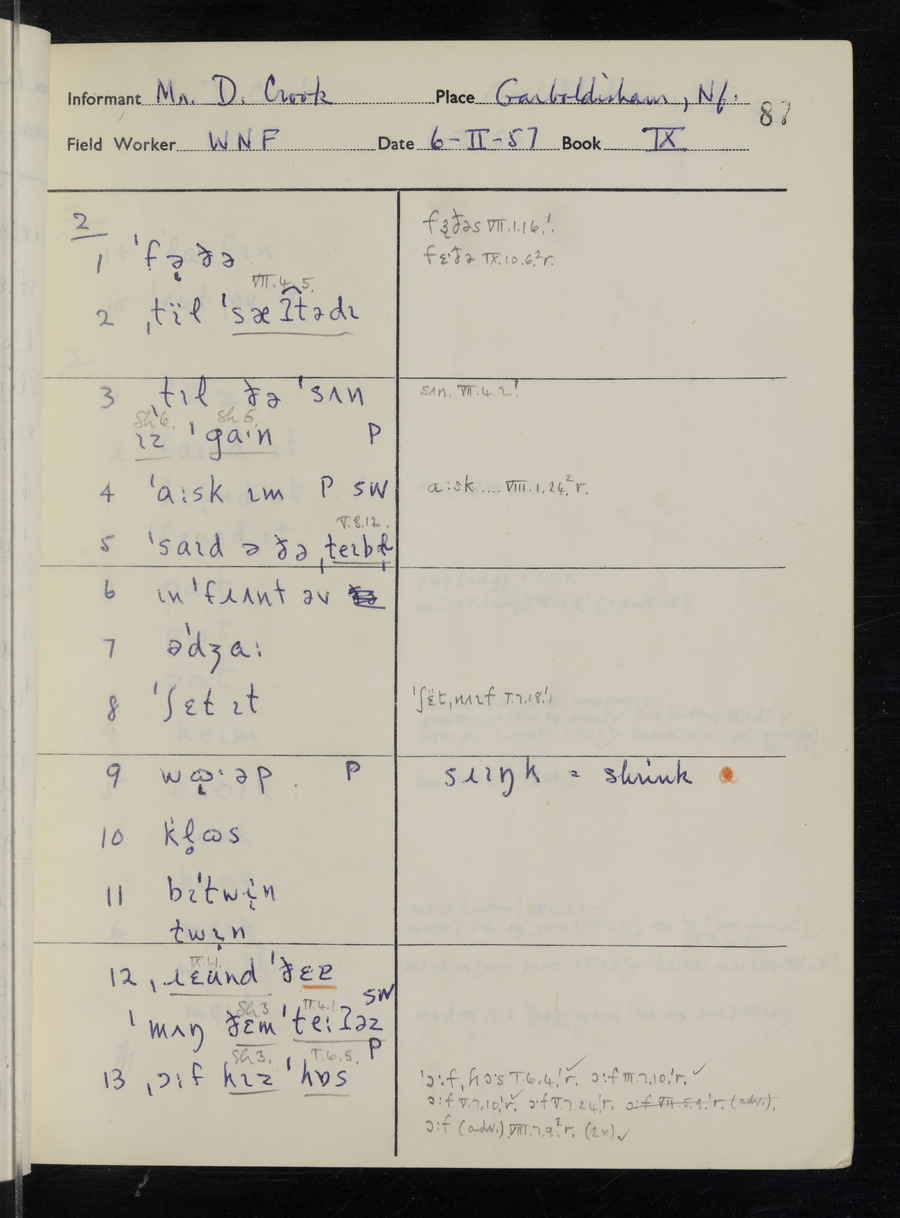 Informant Mr. D. Crook Place Garboldisham, Nf.
87
Field Worker WNF Date 6-II-57 Book IX
2
1 ˈfə̨ðə
fɜðəs VII.1.16.¹
fɛˑðə IX.10.6.²r.
VII.4.5.
2 ˌtïl ˈsæʔtədɪ
3 ˌtɪl ðə ˈsʌn
sʌn. VII.4.2¹
Sh 6. Sh 5.
ɪz ˈgaˑn P
4 ˈaːsk ɪm P SW
aːsk .... VIII.1.24.²r.
V.8.12.
5 ˈsaɪd ə ðə
6 ɪnˈfɹʌnt əv
7 əˈdʒaː
8 ˈʃɛt ɪt
9 P
sɹɪŋk = shrink
10 kl̥ɷs
11 bɪˈtwi̜n
twi̜n
IX.1.1.
12 ˌɹɛünd ˈðɛɛ
Sh 3 II.4.1. SW
ˈmʌŋ ðɛm ˈteːʔəz
Sh 3. I.6.5. P
13 ˌɔːf hɪz ˈhɒs
ˈɔːf, hɔˑs I.6.4.¹r. ✓ ɔːf III.7.10.¹r. ✓
ɔːf V.7.10.¹r. ✓ ɔˑf V.7.24.¹r. ɔːf VII.5.9.¹r. (adv.).
ɔːf (adv.) VIII.7.9.²r. (2x) ✓